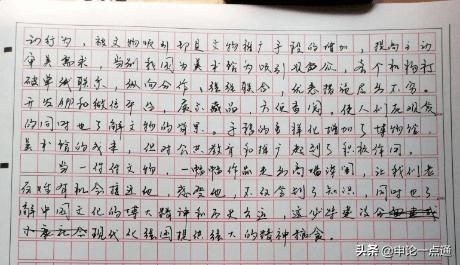 动行为，被文物吸引却是文物推广手段的增加，提高主动
审美需求，当别我国美术馆为吸引观众，各个机构打
破单线联系，纵向合作，强强联合，优惠措施层出不穷。
开发APP和微信平台，展示藏品，方便查阅，使人们在收赏
的同时也了解文物的背景。手段的多样化增加了博物馆，
美术馆的成本，但对公共教育和推广起到了积极作用。
当一件件文物，一幅幅作品走出高墙深闺，让我们老
百姓有机会接近他，感受他，不仅学到了知识，同时也了
解中国文化的博大精神和历史久远，这必将建设
现代化强国提供强大的精神粮食。
头条 @申论一点通